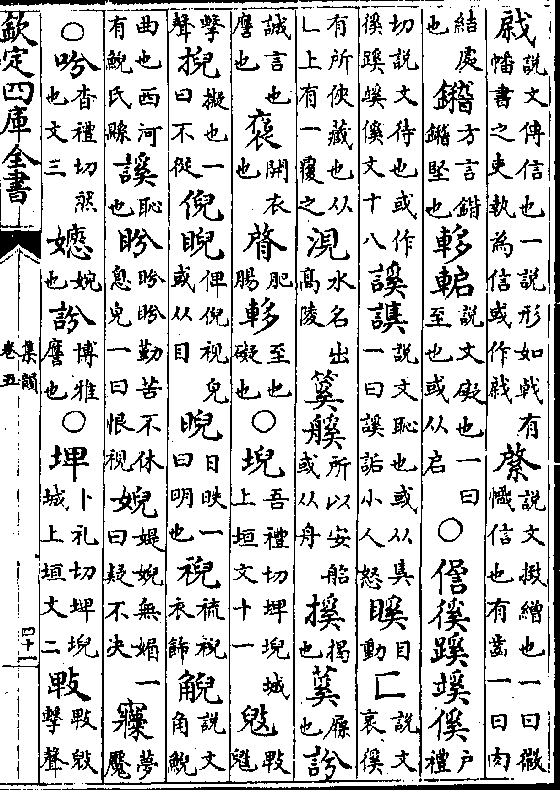 說文傳信也一說形如戟有幡書之吏執為信或作 綮說文㨖繒也一曰徽幟信也有齒一曰肉
結處也 鍇方言鍇鍇堅也 說文礙也一曰至也或从启○徯蹊傒戶禮
切說文待也或作徯蹊傒文十八 謑說文恥也或从奊一曰謑詬小人怒 目動 匸說文衺徯
有所俠藏也从乚上有一覆之 水名出高陵 所以安船或从舟 揭也 蒵屨也 訡
誠言也譍也 開衣也 肥腸 至也礙也○堄吾禮切埤堄城上垣文十一
擊聲 掜擬也一曰不從 倪睨俾倪視皃或从目 晲日昳一曰明也 衣飾 觬說文角觬
曲也西河有觬氏縣 謑恥也 盻盻盻勤苦不休息皃一曰恨視 婗婗無媚一曰疑不決 夢魘
○吟杳禮切然也文三 婉也 訡博雅譍也○埤卜礼切埤堄城上垣文二 擊聲
欽定四庫全書
集韻
卷五
四十一